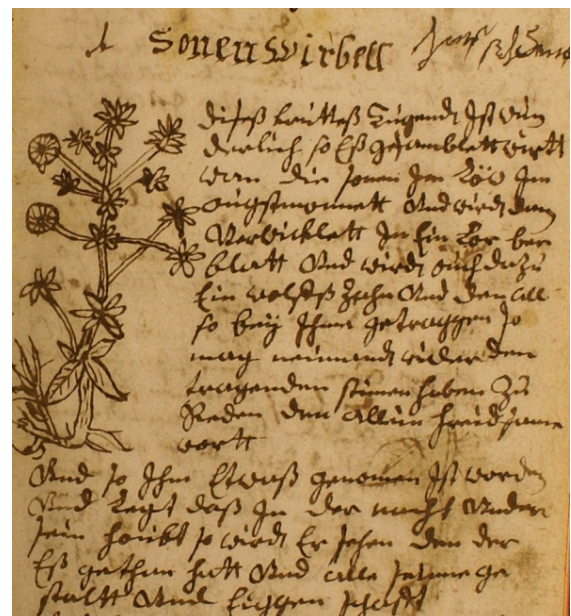 Sonen wirbell
dißeß krutteß Tugendt Ist wun
derlich so Eß gesamblett wirtt
wan die sonen Im Löw Im
augstmonnett Und wirdt dan
Verwicklett In Ein Lor ber
blatt Und wirdt ouch dazu
Ein wolffß Zahn Und den all
so bey Ihme getraggen so
mag neimandt wider den
tragenden stimen haben Zu
Reden den allein freidsame
wortt
Und so Ihm Etwaß genomen Ist worden
Und Legt daß In der nacht Under
sein houbt so wirdt Er sehen den der
Eß gethan hatt Und alle seinne ge
staltt Und